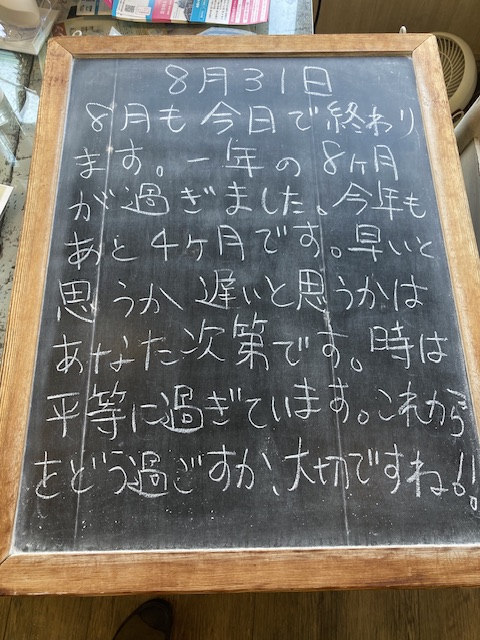 8月31日
8月も今日で終わり
ます。一年の8ヶ月
が過ぎました。今年も
あと4ヶ月です。早いと
思うか、遅いと思うかは
あなた次第です。時は
平等に過ぎています。これから
をどう過ごすか、大切ですね!!